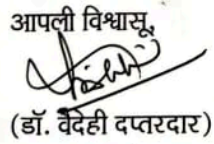 आपली विश्वासू,
(डॉ. वैदेही दप्तरदार)